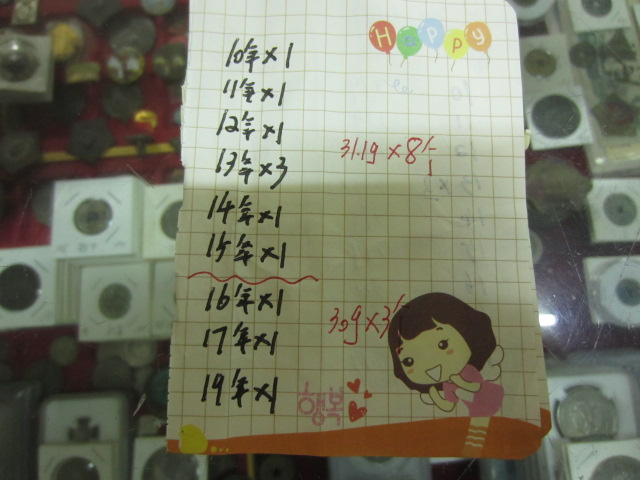 Happy
10年×1
11年×1
12年×1
13年×3
31.1g×8个
14年×1
15年×1
16年×1
30g×3个
17年×1
19年×1
행복